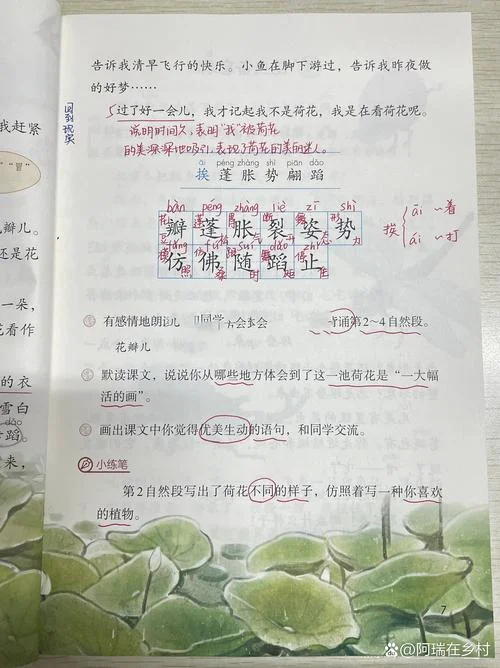 我赶紧
"冒"
瓣儿。
还是花
一朵，
花看作
的衣
雪白
dǎo
蹈。
来，
告诉我清早飞行的快乐。小鱼在脚下游过，告诉我昨夜做
的好梦……
回到现实
5过了好一会儿，我才记起我不是荷花，我是在看荷花呢。
说明时间久，表明"我"被荷花
的美深深地吸引，表现了荷花的美的迷人。
āi péng zhàng shì piān dǎo
挨 蓬 胀 势 翩 蹈
bàn péng zhàng liè zī shì
瓣 蓬 胀 裂 姿 势
fǎng fú suí dǎo zhǐ
仿 佛 随 蹈 止
挨 āi ~着
ái ~打
有感情地朗 同学 会 诵第2~4自然段。
花瓣儿
默读课文，说说你从哪些地方体会到了这一池荷花是"一大幅
活的画"。
画出课文中你觉得优美生动的语句，和同学交流。
小练笔
第2自然段写出了荷花不同的样子，仿照着写一种你喜欢
的植物。
7
@阿瑞在乡村